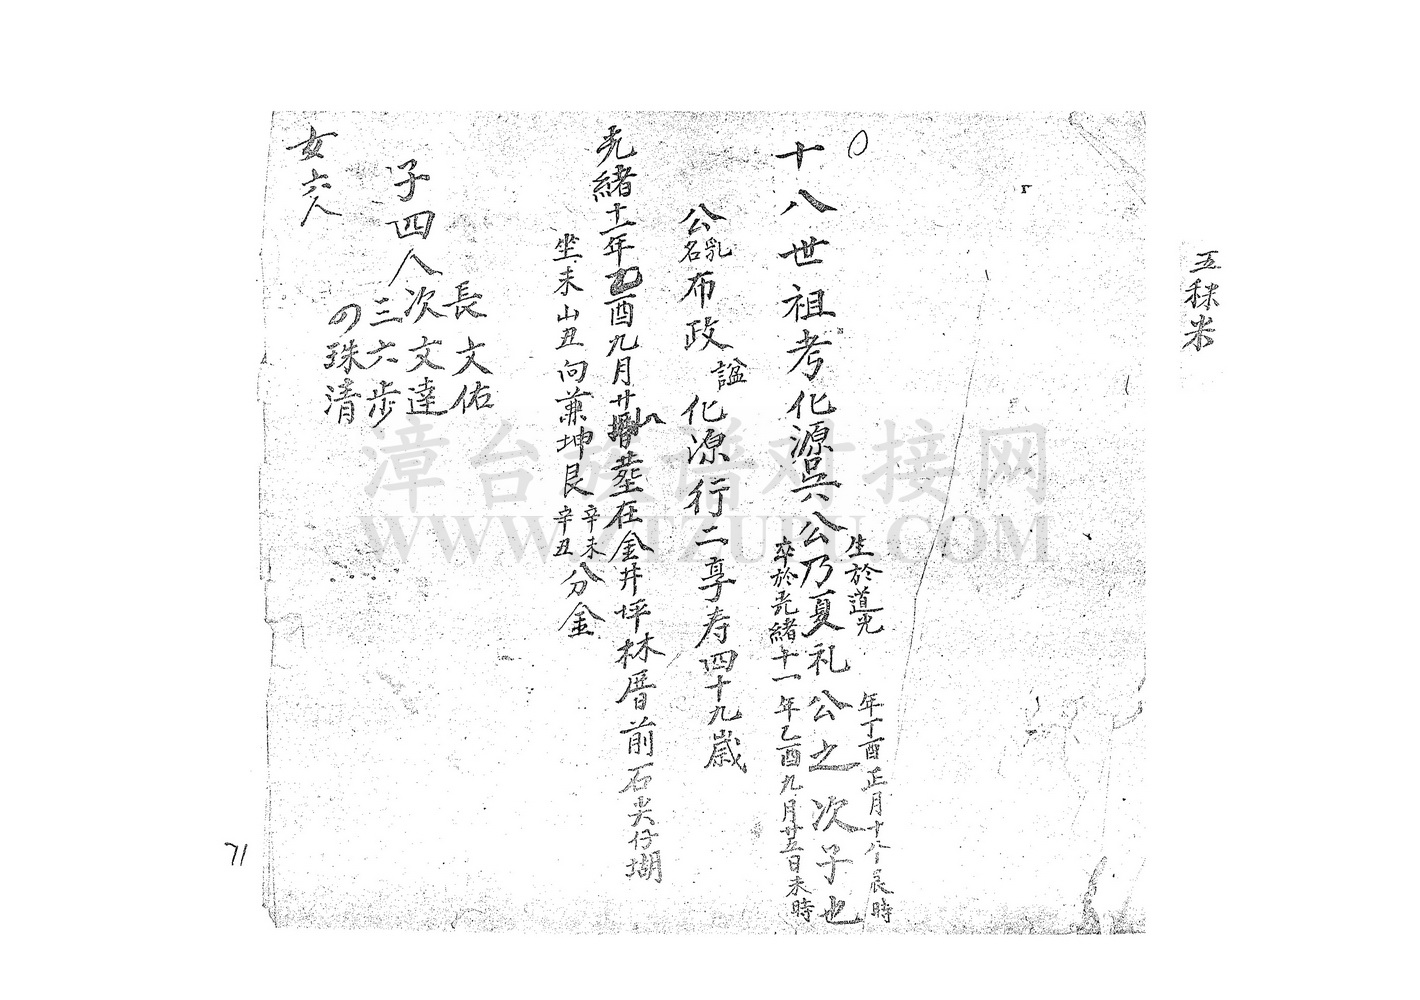 五秣米
十八世祖考化源吳公乃夏礼公之次子也
生於道光年丁酉正月十八日辰時
卒於光緒十一年乙酉九月廿五日未時
公乳名布政 謚化源行二享寿四十九歲
光緒十一年乙酉九月廿 塟在金井坪林厝前石尖仔塘
坐未山丑向兼坤艮辛未辛丑分金
子四人
長文佑
次文達
三六步
四珠清
女六人
71
漳台族谱对接网
WWW.ZTZUPU.COM